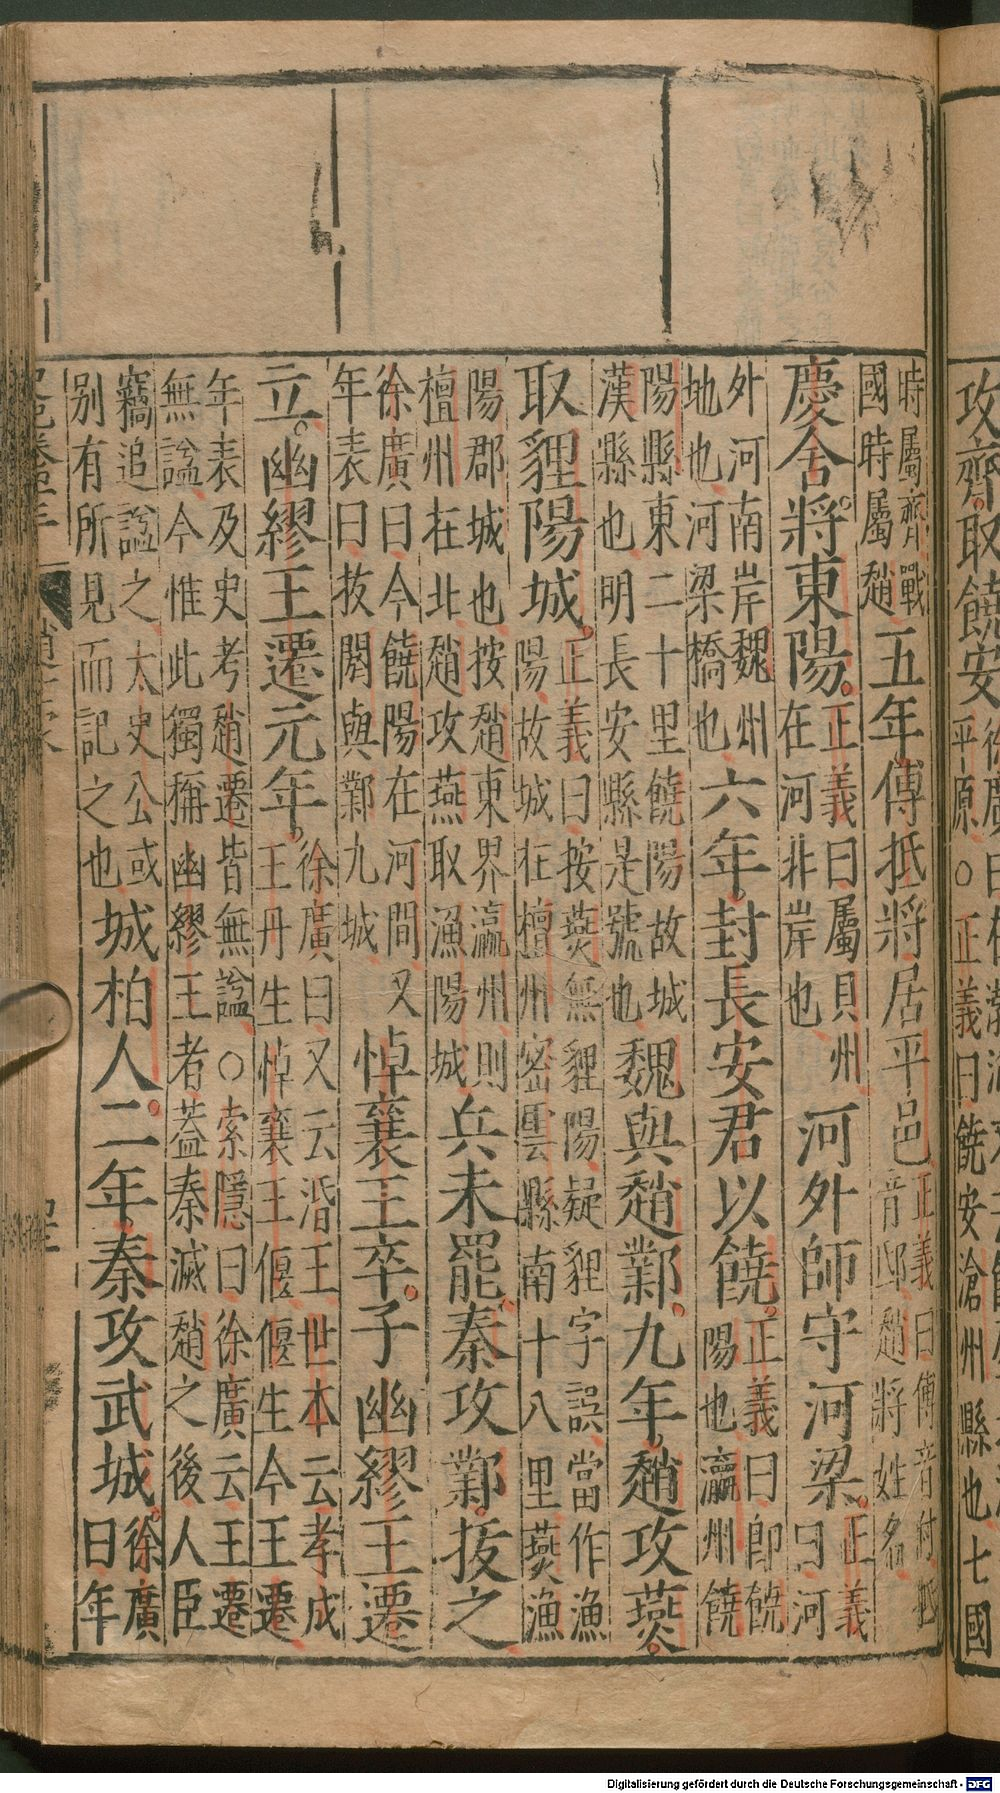 攻齊取饒安
平原○正義曰饒安滄州縣也七國
時屬齊戰
國時屬趙
五年傅抵將居平邑
正義曰傅音付抵
音邸趙將姓名
慶舍將東陽
正義曰屬貝州
在河北岸也
河外師守河梁
正義
曰河
外河南岸魏州
地也河梁橋也
六年封長安君以饒
正義曰即饒
陽也瀛州饒
陽縣東二十里饒陽故城
漢縣也明長安縣是號也
魏與趙鄴九年趙攻燕
取貍陽城
正義曰按燕無貍陽疑貍字誤當作漁
陽故城在檀州密雲縣南十八里燕漁
陽郡城也按趙東界瀛州則
檀州在北趙攻燕取漁陽城
兵未罷秦攻鄴拔之
徐廣曰今饒陽在河間又
年表曰拔閼與鄴九城
悼襄王卒子幽繆王遷
立幽繆王遷元年
徐廣曰又云湣王世本云孝成
王丹生悼襄王偃偃生今王遷
年表及史考趙遷皆無謚○索隱曰徐廣云王遷
無謚今惟此獨稱幽繆王者蓋秦滅趙之後人臣
竊追謚之太史公或
別有所見而記之也
城柏人二年秦攻武城
徐廣
曰年
Digitalisierung gefördert durch die Deutsche Forschungsgemeinschaft - DFG